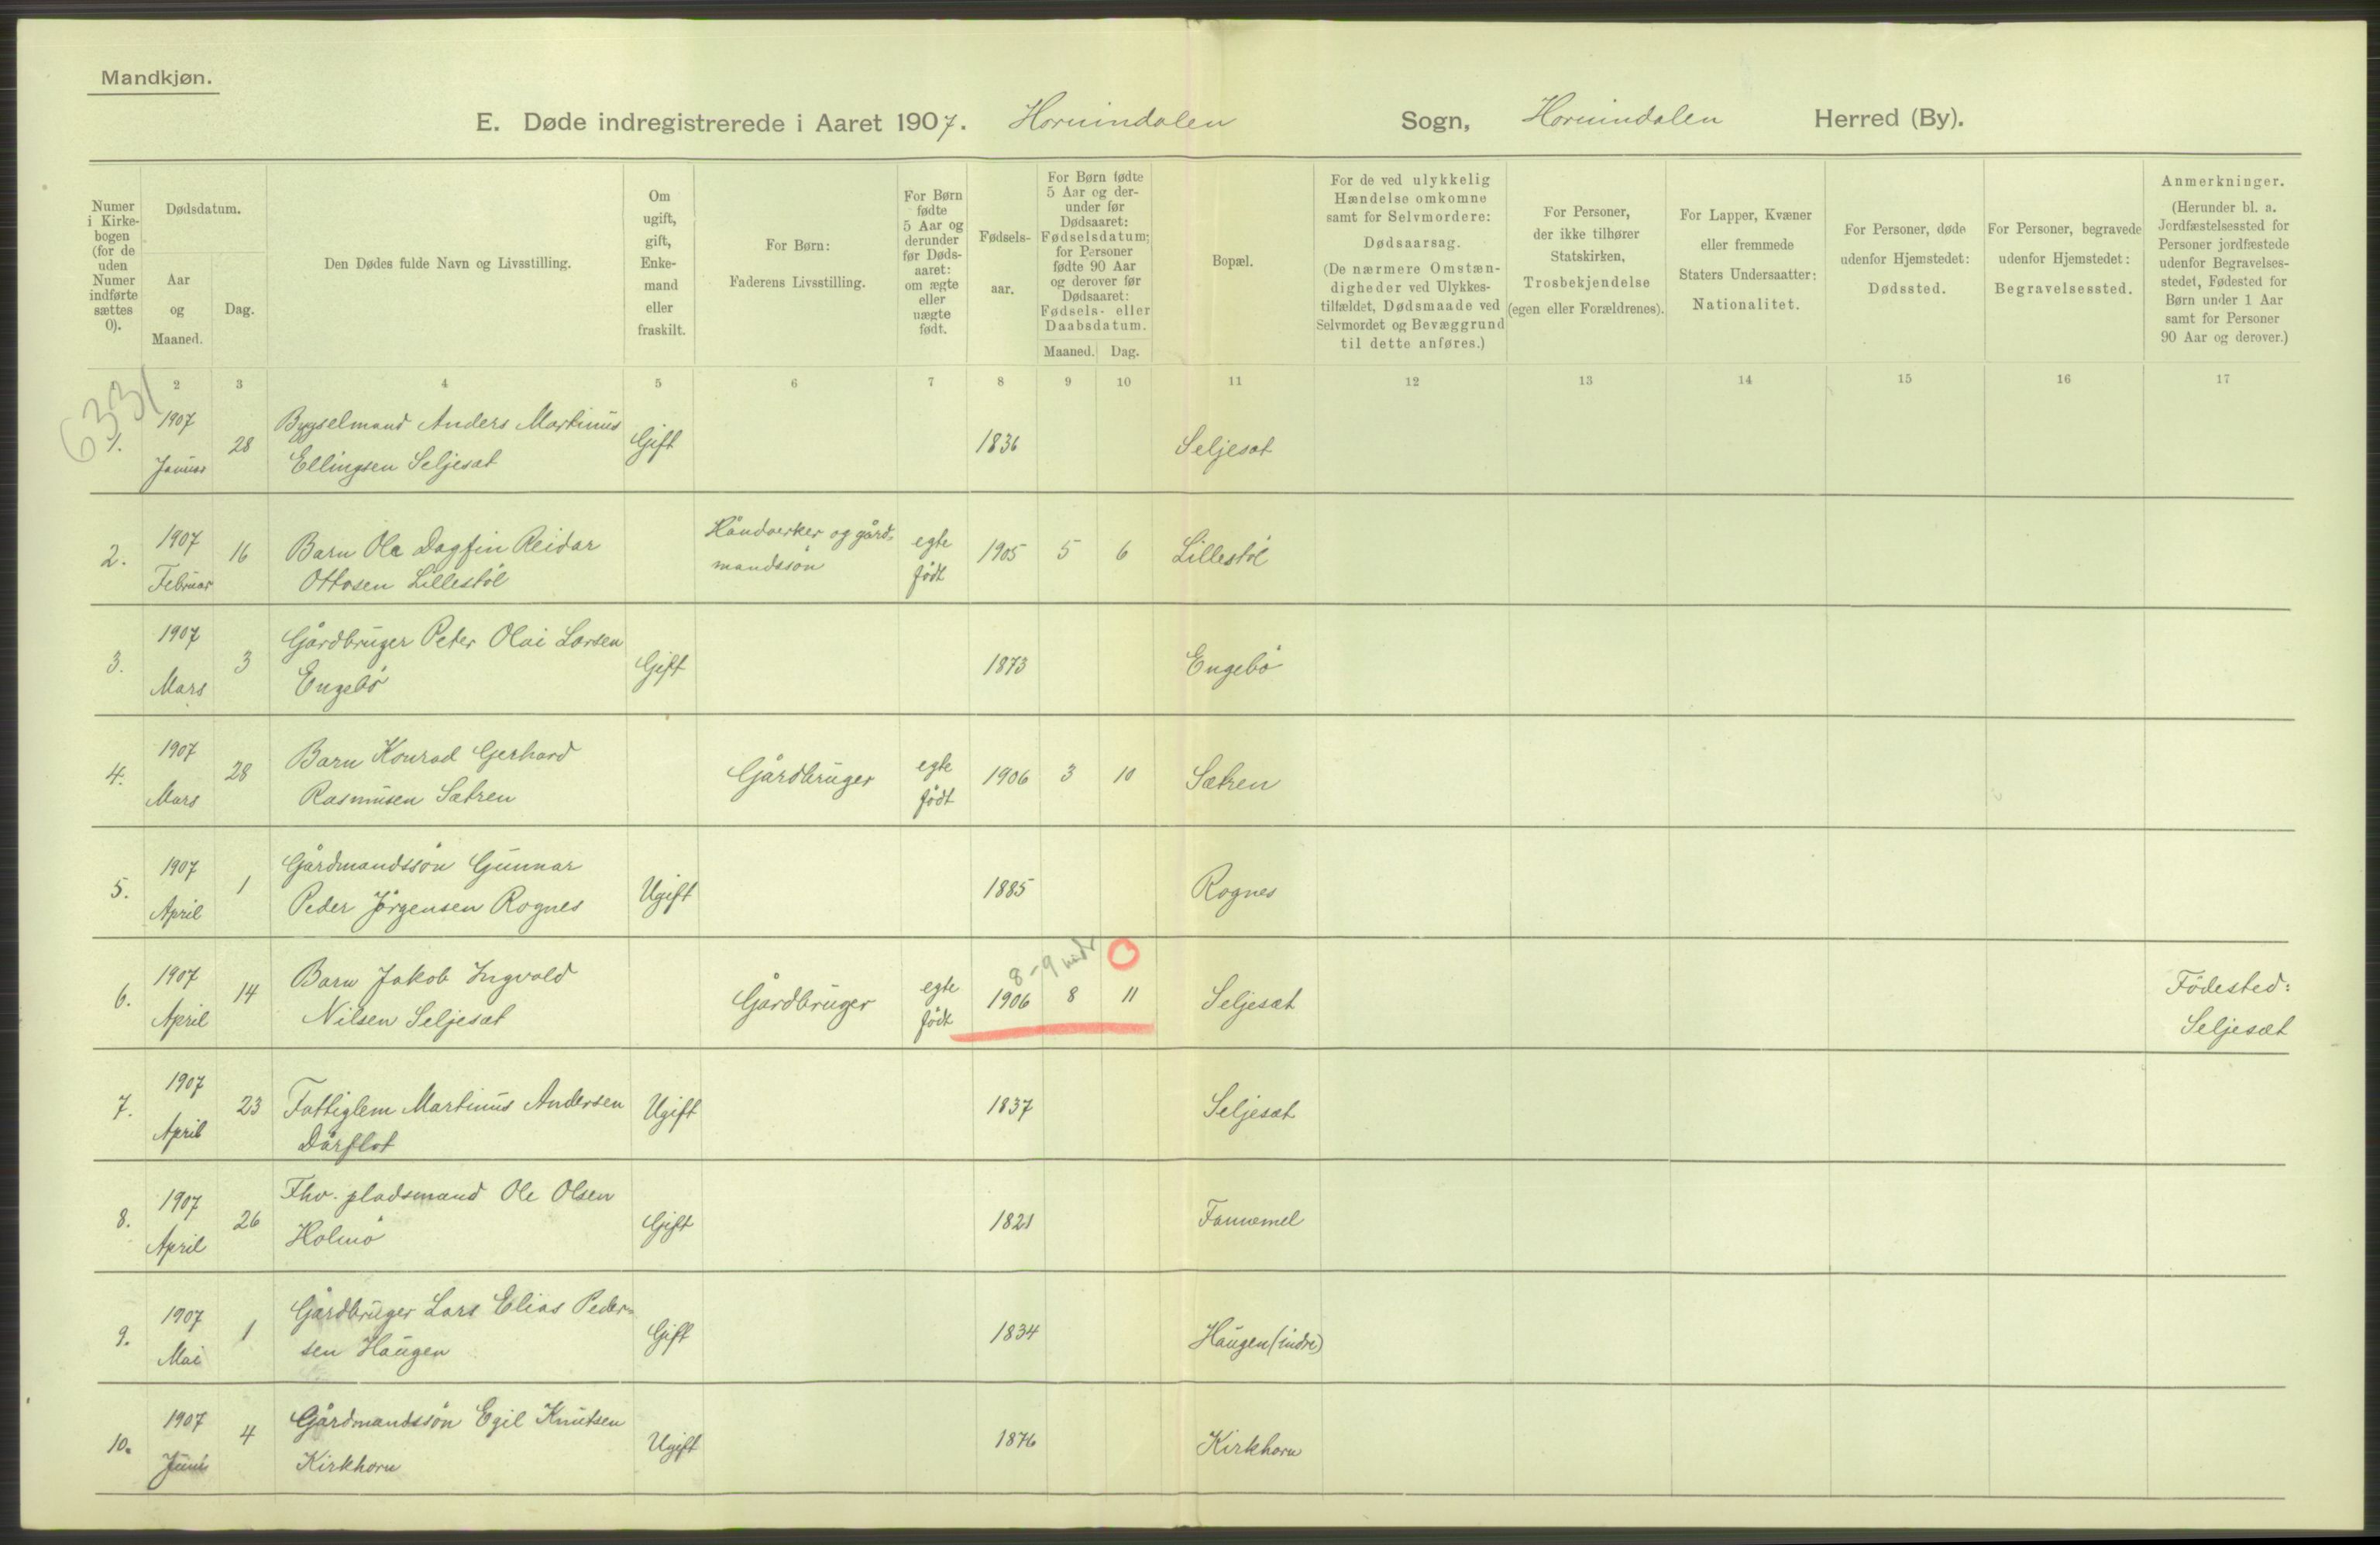 Mandkjøn.
E. Døde indregistrerede i Aaret 1907. Hornindalen Sogn, Hornindalen Herred (By).
Numer i Kirkebogen (for de uden Numer indførte sættes 0).
Dødsdatum.
Aar og Maaned.
Dag.
Den Dødes fulde Navn og Livsstilling.
Om ugift, gift, Enkemand eller fraskilt.
For Børn: Faderens Livsstilling.
For Børn fødte 5 Aar og derunder før Dødsaaret: om ægte eller uægte født.
Fødselsaar.
For Børn fødte 5 Aar og derunder før Dødsaaret: Fødselsdatum; for Personer fødte 90 Aar og derover før Dødsaaret: Fødsels- eller Daabsdatum.
Maaned. Dag.
Bopæl.
For de ved ulykkelig Hændelse omkomne samt for Selvmordere: Dødsaarsag. (De nærmere Omstændigheder ved Ulykkestilfældet, Dødsmaade ved Selvmordet og Bevæggrund til dette anføres.)
For Personer, der ikke tilhører Statskirken, Trosbekjendelse (egen eller Forældrenes).
For Lapper, Kvæner eller fremmede Staters Undersaatter: Nationalitet.
For Personer, døde udenfor Hjemstedet: Dødssted.
For Personer, begravede udenfor Hjemstedet: Begravelsessted.
Anmerkninger. (Herunder bl. a. Jordfæstelsessted for Personer jordfæstede udenfor Begravelsesstedet, Fødested for Børn under 1 Aar samt for Personer 90 Aar og derover.)
2 3 4 5 6 7 8 9 10 11 12 13 14 15 16 17
6331
1. 1907 Januar 28 Bygselmand Anders Martinus Gift 1836 Seljesæt
Ellingsen Seljesæt
2. 1907 Februar 16 Barn Ola Dagfin Reidar Håndverker og gård- mandssøn egte født 1905 5 6 Lillestöl
Ottosen Lillestöl
3. 1907 Mars 3 Gårdbruger Peter Olai Larsen Gift 1873 Engebö
Engebö
4. 1907 Mars 28 Barn Konrad Gerhard Gårdbruger egte født 1906 3 10 Sætren
Rasmusen Sætren
5. 1907 April 1 Gårdmandssön Gunnar Ugift 1885 Rognes
Peder Jörgensen Rognes
8-9 mdr
6. 1907 April 14 Barn Jakob Ingvald Gårdbruger egte født 1906 8 11 Seljesæt Födested: Seljesæt
Nilsen Seljesæt
7. 1907 April 23 Fattiglem Martinus Andersen Ugift 1837 Seljesæt
Dårflot
8. 1907 April 26 Fhv. pladsmand Ole Olsen Gift 1821 Fannemel
Holmö
9. 1907 Mai 1 Gårdbruger Lars Elias Peder- Gift 1834 Haugen (indre)
sen Haugen
10. 1907 Juni 4 Gårdmandssön Egil Knutsen Ugift 1876 Kirkhorn
Kirkhorn